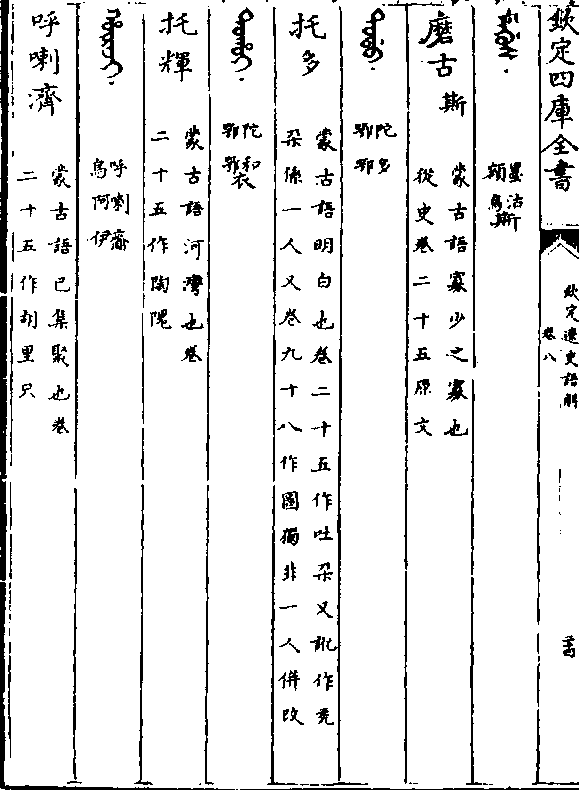 欽定四庫全書
欽定遼史語解
卷八
墨沽斯
額烏
磨古斯
蒙古語寡少之寡也
從史卷二十五原文
陀多
鄂鄂
托多
蒙古語明白也卷二十五作吐朶又訛作禿
朶係一人又卷九十八作圖獨非一人併改
陀和衣
鄂鄂
托輝
蒙古語河灣也卷
二十五作陶隗
呼喇齋
烏阿伊
呼喇濟
蒙古語已集聚也卷
二十五作胡里只